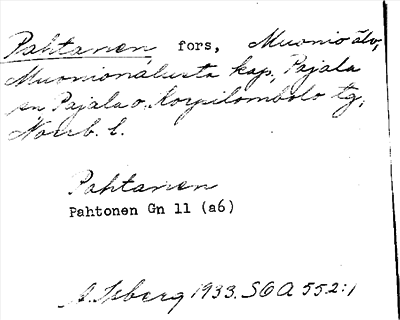 Pahtanen, fors, Muonio älv,
Muonionalusta kap, Pajala
sn Pajala o. Korpilombolo tg,
Norrb. l.
Pahtanen
Pahtonen Gn 11 (a6)
A. Isberg 1933. SOA 552:1